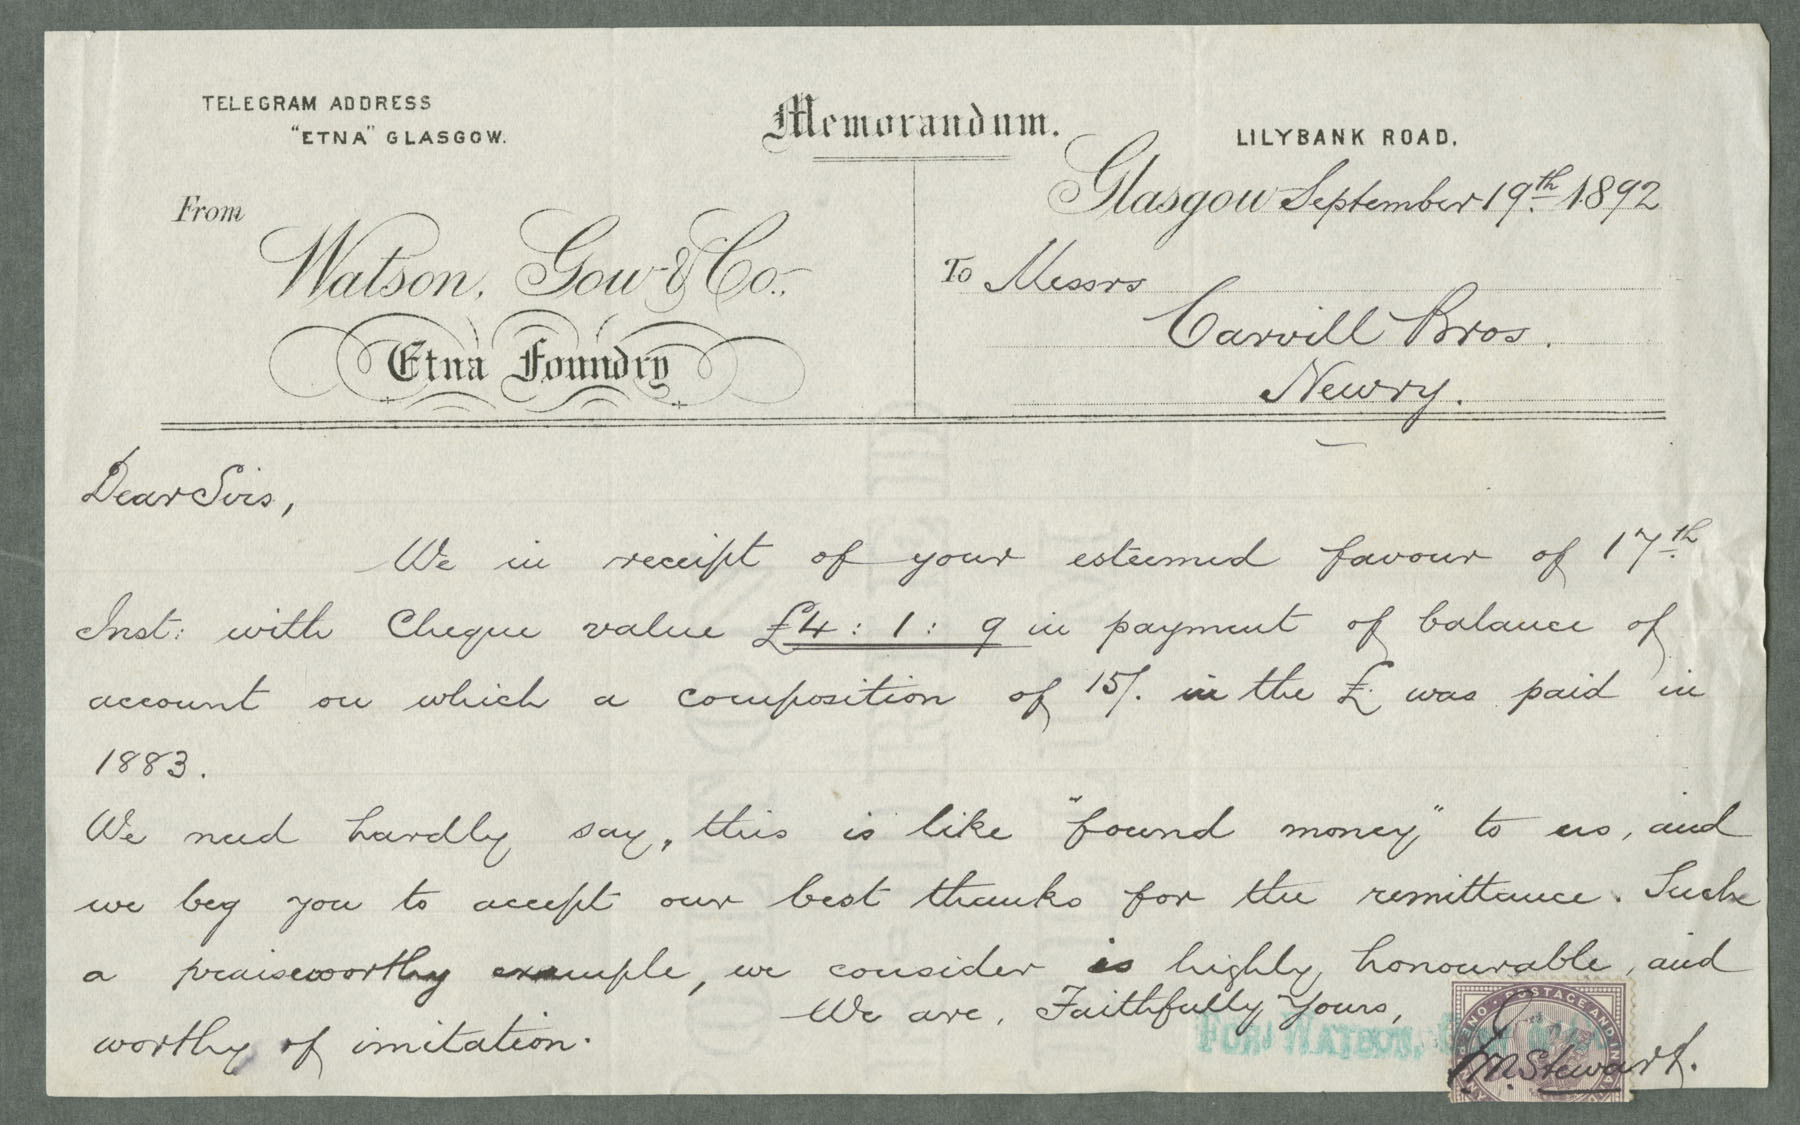 TELEGRAM ADDRESS
"ETNA" GLASGOW.
Memorandum.
LILYBANK ROAD,
Glasgow September 19th. 1892
From
Watson, Gow & Co.,
Etna Foundry
To Messrs
Carvill Bros.
Newry.
Dear Sirs,
We in receipt of your esteemed favour of 17th.
Inst: with Cheque value £4 : 1 : 9 in payment of balance of
account on which a composition of 15/. in the £ was paid in
1883.
We need hardly say, this is like "found money" to us, and
we beg you to accept our best thanks for the remittance. Such
a praiseworthy example, we consider is highly honourable, and
worthy of imitation.
We are, Faithfully Yours,
FOR WATSON, GOW & CO.
POSTAGE AND IN
Stewart.